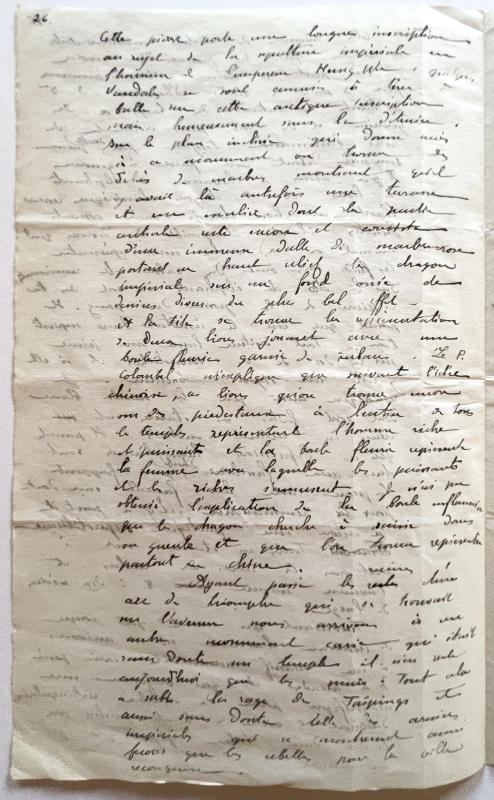 26
Cette pierre porte une longue inscription
au sujet de la sépulture impériale en
l'honneur de l'empereur Hung Wu. quelques
Vandales se sont amusés à tirer à
balle sur cette antique inscription
mais heureusement sans la détruire.
Sur le plan incliné qui donne accès
à ce monument on trouve des
débris de marbres montrant qu'il
y avait là autrefois une terrasse
et un escalier dont la partie
centrale reste encore et consiste
d'une immense dalle de marbre rose
portant en haut relief le dragon
impérial sur un fond orné de
dessins divers du plus bel effet.
et la tête se trouve la représentation
de Deux lions jouant avec une
boule fleurie garnie de rubans. Le P.
Colombel m'explique que suivant l'idée
chinoise, ces lions qu'on trouve
sur des piedestaux à l'entrée de tous
les temples représentent l'homme riche
et puissant et la boule fleurie représente
la femme avec laquelle les puissants
et les riches s'amusent. Je n'ai pu
obtenir l'explication de la boule enflammée
que le dragon cherche à saisir dans
sa gueule et que l'on trouve représentée
partout en chine.
Ayant passé les restes d'une
arc de triomphe qui se trouvait
sur l'avenue nous arrivons à un
autre monument carré qui était
sans doute un temple il n'en reste
aujourd'hui que les murs. Tout cela
a subi la rage des Taïpings et
aussi sans doute celle des armées
impériales qui se montrèrent aussi
féroces que les rebelles pour la ville
reconquise.